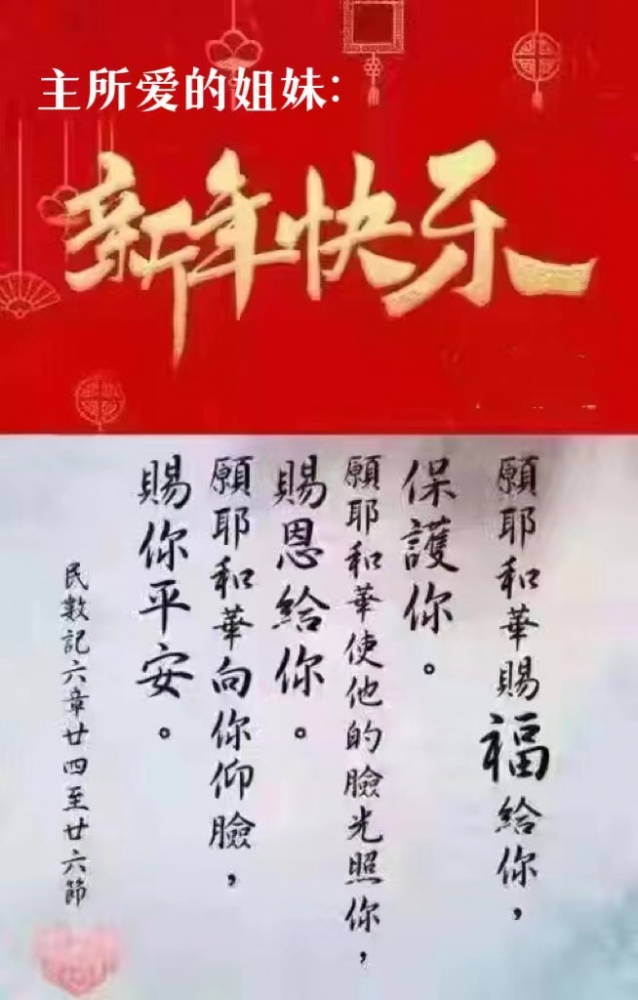 主所爱的姐妹:
新年快乐
願耶和華賜福給你，
保護你。
願耶和華使他的臉光照你，
賜恩給你。
願耶和華向你仰臉，
賜你平安。
民數記六章廿四至廿六節